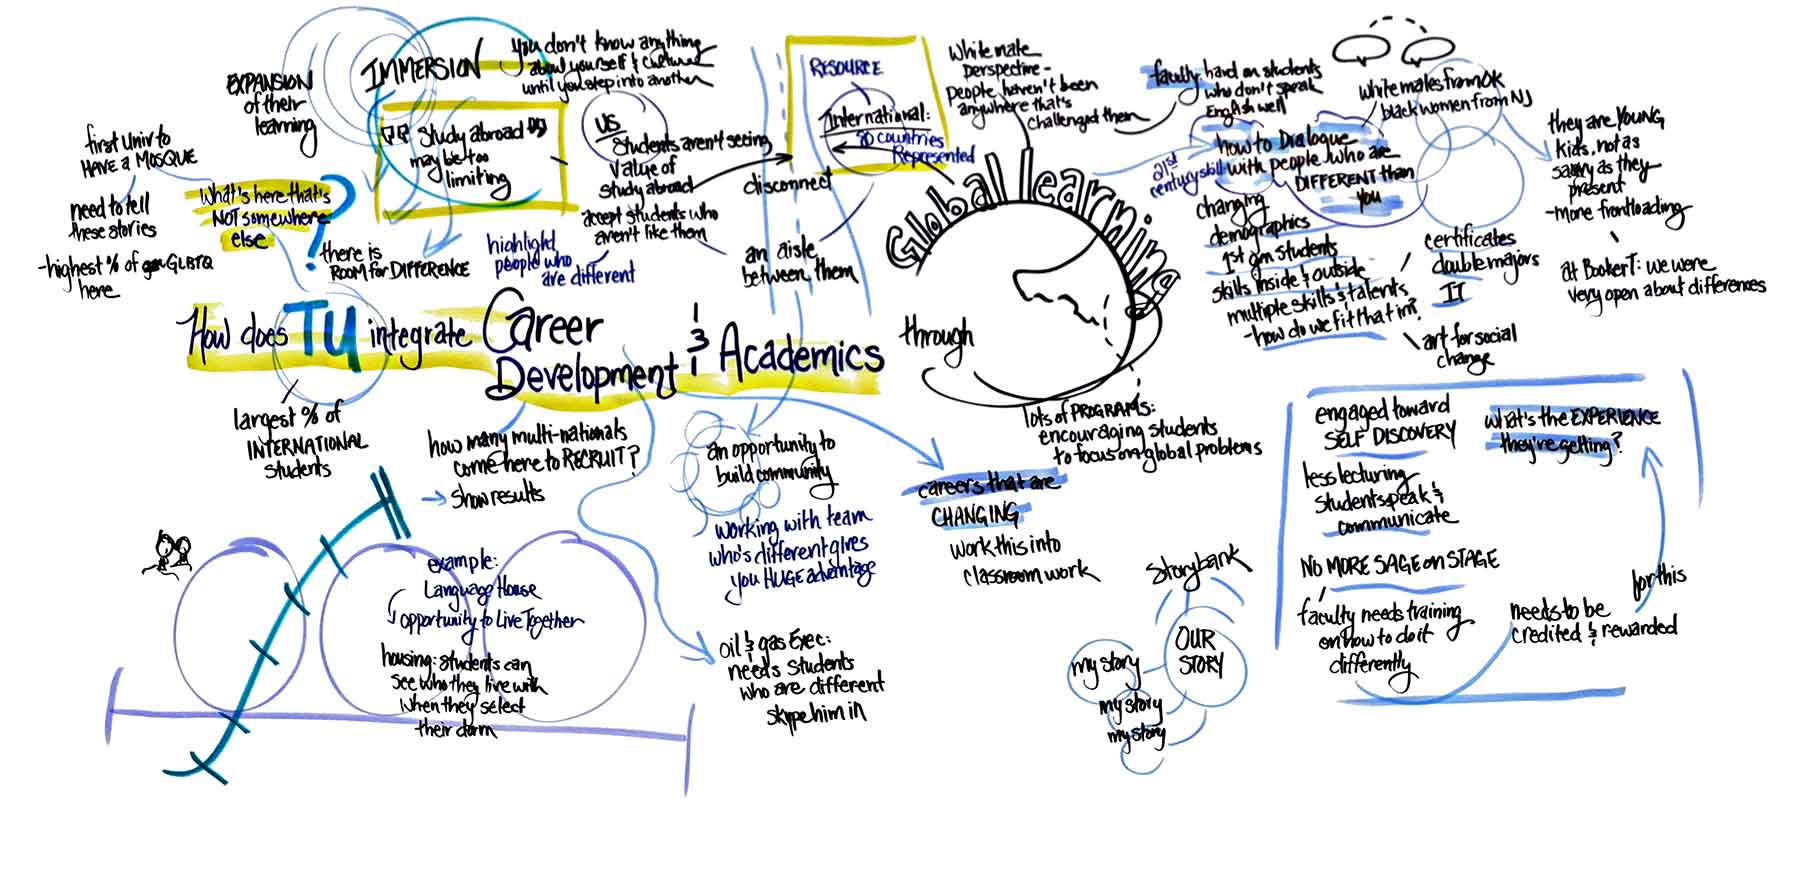 EXPANSION
of their
learning
IMMERSION
you don't know anything
about yourself & culture
until you step into another
first Univ to
HAVE a MOSQUE
need to tell
these stories
-highest % of GLBTQ
here
What's here that's
NOT somewhere
else
?
!
"Study abroad"
may be too
limiting
there is
ROOM for DIFFERENCE
US
Students aren't seeing
Value of
study abroad
accept students who
aren't like them
highlight
people who
are different
disconnect
an aisle
between them
RESOURCE
International:
80 countries
Represented
White male
perspective -
people haven't been
anywhere that's
challenged them
faculty hard on students
who don't speak
English well
white males from OK
black women from NJ
21st
century skill
how to Dialogue
with people who are
DIFFERENT than
you
they are YOUNG
kids, not as
savvy as they
present
- more frontloading
at BookerT: we were
very open about differences
changing
demographics
1st gen students
skills inside & outside
multiple skills & talents
-how do we fit that in?
certificates
double majors
IT
art for social
change
How does TU integrate Career
Development & Academics
through
Global learning
largest % of
INTERNATIONAL
students
how many multi-nationals
come here to RECRUIT?
→ show results
an opportunity to
build community
working with team
who's different gives
you HUGE advantage
lots of PROGRAMS:
encouraging students
to focus on global problems
careers that are
CHANGING
work this into
classroom work
example:
Language House
opportunity to Live Together
housing: students can
see who they live with
when they select
their dorm
oil & gas Exec:
needs students
who are different
skype him in
Storybank
OUR
STORY
my story
my story
my story
engaged toward
SELF DISCOVERY
less lecturing
students speak &
communicate
NO MORE SAGE on STAGE
faculty needs training
on how to do it
differently
what's the EXPERIENCE
they're getting?
needs to be
credited & rewarded
for this